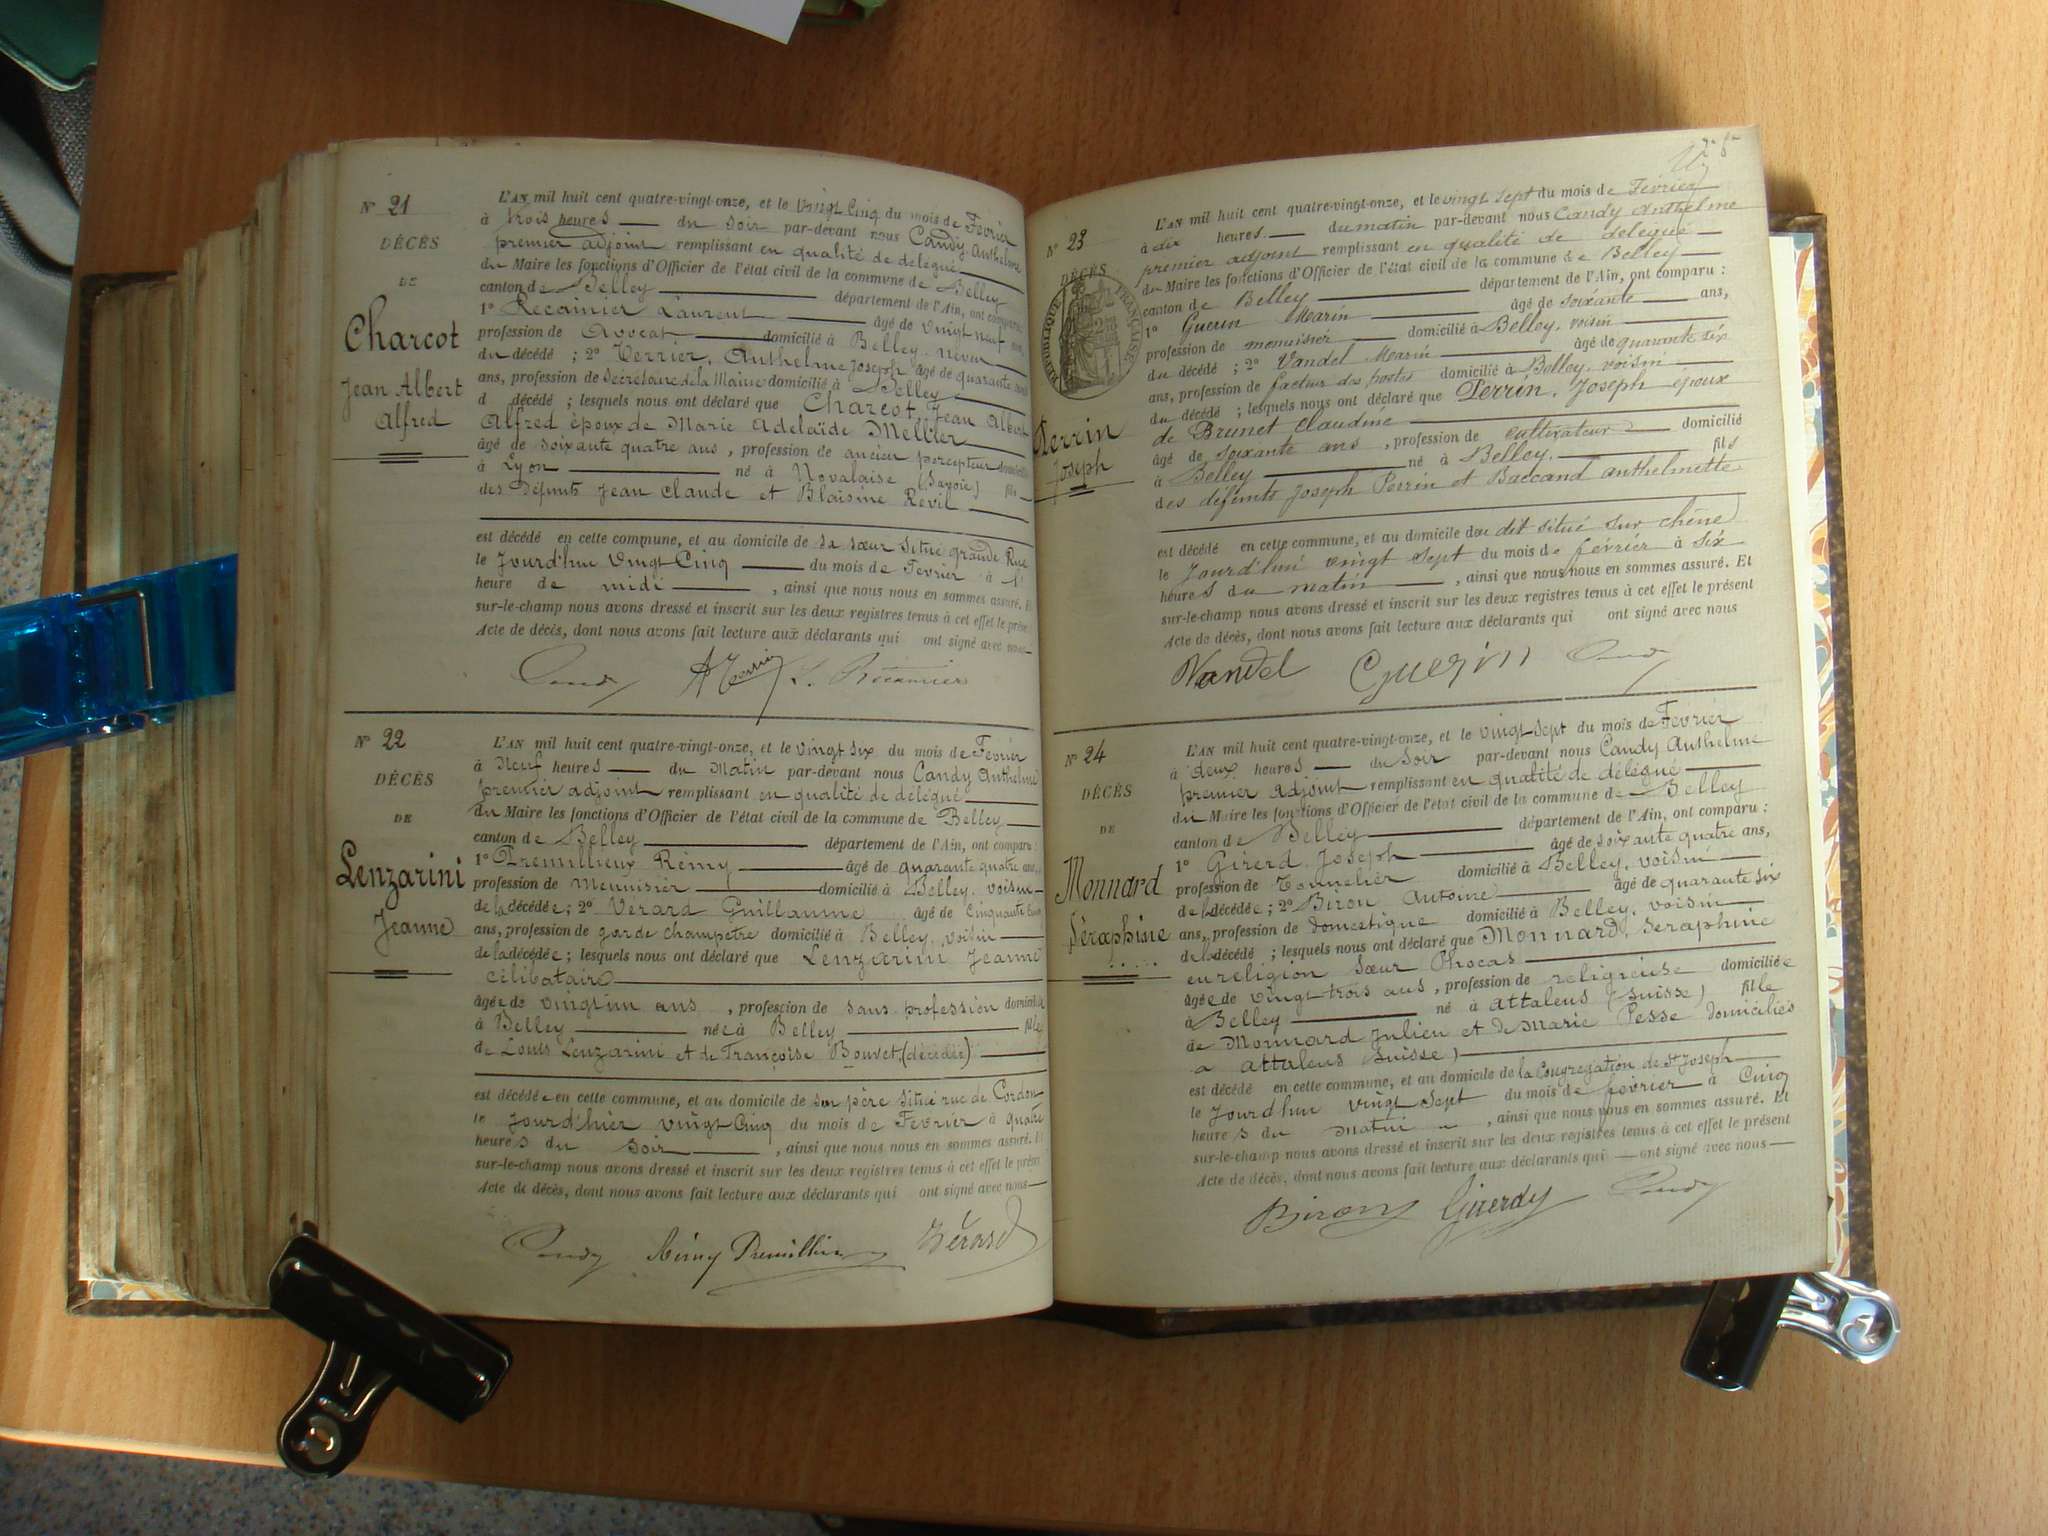 N° 21
DÉCÈS
DE
Charcot
Jean Albert
Alfred
L'AN mil huit cent quatre-vingt-onze, et le vingt Cinq du mois de Fevrier
à trois heures du soir par-devant nous Candy Anthelme
premier adjoint remplissant en qualité de délégué
du Maire les fonctions d'Officier de l'état civil de la commune de Belley
canton de Belley département de l'Ain, ont comparu
1° Recamier Laurent âgé de vingt neuf ans,
profession de Avocat domicilié à Belley, neveu
du décédé ; 2° Verrier, Anthelme Joseph âgé de quarante
ans, profession de Secrétaire de la Mairie domicilié à Belley
d décédé ; lesquels nous ont déclaré que Charcot, Jean Albert
Alfred époux de Marie Adelaïde Mellier
âgé de soixante quatre ans, profession de ancien percepteur domicilié
à Lyon né à Novalaise (Savoie) fils
des défunts Jean Claude et Blaisine Revil
est décédé en cette commune, et au domicile de sa sœur situé grande Rue
le Jourd'hui Vingt Cinq du mois de Fevrier à l'
heure de midi, ainsi que nous nous en sommes assuré. Et
sur-le-champ nous avons dressé et inscrit sur les deux registres tenus à cet effet le présent
Acte de décès, dont nous avons fait lecture aux déclarants qui ont signé avec nous
Candy L. Récamier
N° 22
DÉCÈS
DE
Lenzarini
Jeanne
L'AN mil huit cent quatre-vingt-onze, et le vingt six du mois de Fevrier
à Neuf heures du Matin par-devant nous Candy Anthelme
premier adjoint remplissant en qualité de délégué
du Maire les fonctions d'Officier de l'état civil de la commune de Belley
canton de Belley département de l'Ain, ont comparu :
1° Premillieux Rémy âgé de quarante quatre ans,
profession de Menuisier domicilié à Belley, voisin
de la décédée ; 2° Vérard Guillaume âgé de cinquante cinq
ans, profession de garde champetre domicilié à Belley, voisin
de la décédée ; lesquels nous ont déclaré que Lenzarini Jeanne
célibataire
âgée de vingt un ans, profession de sans profession domiciliée
à Belley née à Belley fille
de Louis Lenzarini et de Françoise Bouvet, (décédée)
est décédée en cette commune, et au domicile de son père situé rue de Cordon
le Jourd'hier vingt Cinq du mois de Fevrier à quatre
heures du soir, ainsi que nous nous en sommes assuré. Et
sur-le-champ nous avons dressé et inscrit sur les deux registres tenus à cet effet le présent
Acte de décès, dont nous avons fait lecture aux déclarants qui ont signé avec nous
Candy Rémy Premillieux Vérard
N° 23
DÉCÈS
RÉPUBLIQUE FRANÇAISE
Perrin
Joseph
L'AN mil huit cent quatre-vingt-onze, et le vingt sept du mois de Fevrier
à dix heures du matin par-devant nous Candy Anthelme
premier adjoint remplissant en qualité de délégué
du Maire les fonctions d'Officier de l'état civil de la commune de Belley
canton de Belley département de l'Ain, ont comparu :
1° Guerin Marin âgé de soixante ans,
profession de menuisier domicilié à Belley, voisin
du décédé ; 2° Vandel Marin âgé de quarante six
ans, profession de facteur des postes domicilié à Belley, voisin
du décédé ; lesquels nous ont déclaré que Perrin, Joseph époux
de Brunet Claudine
âgé de soixante ans, profession de cultivateur domicilié
à Belley né à Belley. fils
des défunts Joseph Perrin et Baccand anthelmette
est décédé en cette commune, et au domicile du dit situé sur chêne
le Jourd'hui vingt sept du mois de février à six
heures du matin, ainsi que nous nous en sommes assuré. Et
sur-le-champ nous avons dressé et inscrit sur les deux registres tenus à cet effet le présent
Acte de décès, dont nous avons fait lecture aux déclarants qui ont signé avec nous
Vandel Guerin Candy
N° 24
DÉCÈS
DE
Monnard
Séraphine
L'AN mil huit cent quatre-vingt-onze, et le vingt sept du mois de Fevrier
à deux heures du Soir par-devant nous Candy Anthelme
premier adjoint remplissant en qualité de délégué
du Maire les fonctions d'Officier de l'état civil de la commune de Belley
canton de Belley département de l'Ain, ont comparu :
1° Girerd Joseph âgé de soixante quatre ans,
profession de Tonnelier domicilié à Belley, voisin
de la décédée ; 2° Biron Antoine âgé de quarante six
ans, profession de domestique domicilié à Belley, voisin
de la décédé ; lesquels nous ont déclaré que Monnard, Seraphine
en religion Sœur Phocas
âgée de vingt trois ans, profession de religieuse domiciliée
à Belley né à attalens (Suisse) fille
de Monnard Julien et de Marie Pesse domiciliés
a attalens Suisse)
est décédé en cette commune, et au domicile de la Congrégation de St Joseph
le Jourd'hui vingt Sept du mois de fevrier à Cinq
heures du matin, ainsi que nous nous en sommes assuré. Et
sur-le-champ nous avons dressé et inscrit sur les deux registres tenus à cet effet le présent
Acte de décès, dont nous avons fait lecture aux déclarants qui ont signé avec nous
Biron Girerd Candy